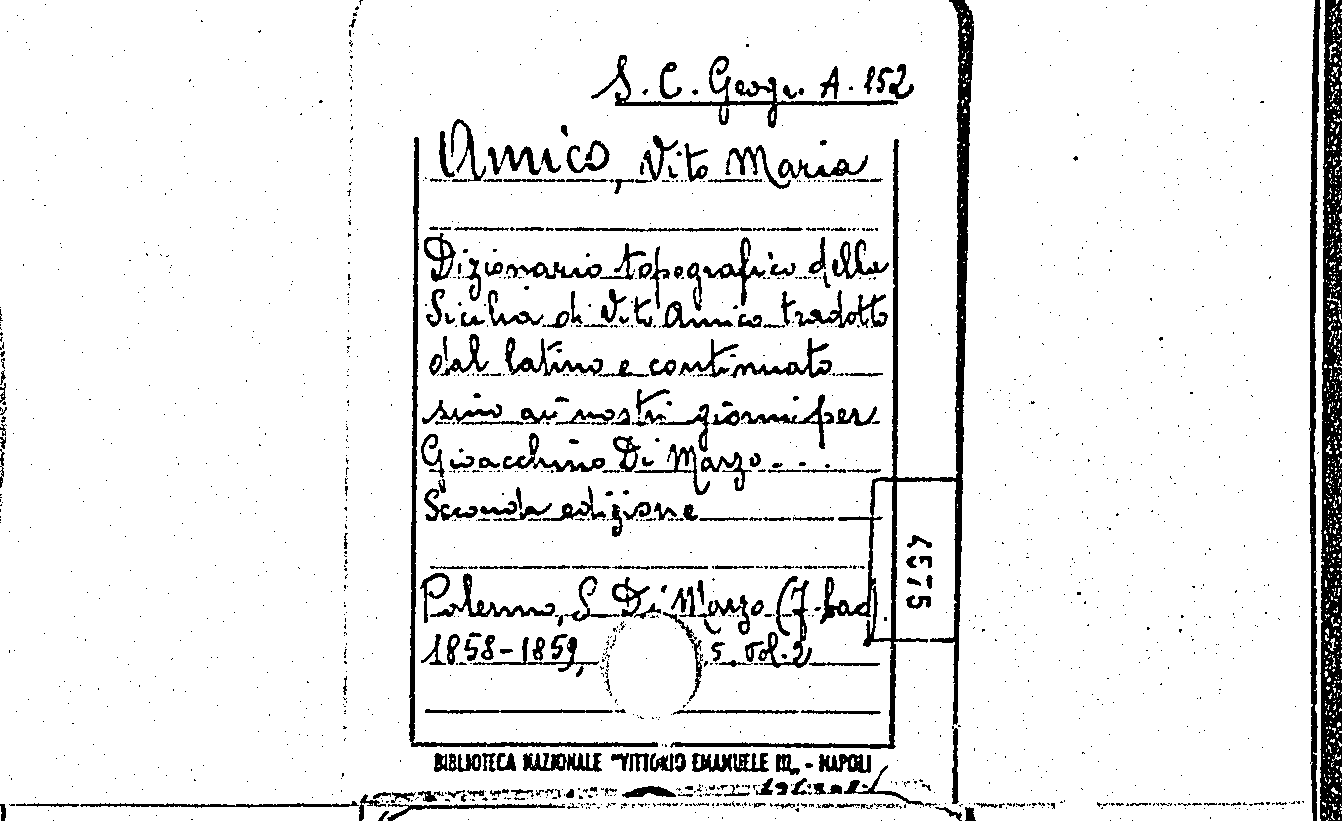 S. C. Geogr. A. 152
Amico, Vito Maria
Dizionario topografico della
Sicilia di Vito Amico tradotto
dal latino e continuato
sino ai nostri giorni per
Gioacchino Di Marzo . . .
Seconda edizione
4575
Palermo, S Di Marzo (F. Lao)
1858-1859, 5. Vol. 2
BIBLIOTECA NAZIONALE "VITTORIO EMANUELE III" - NAPOLI